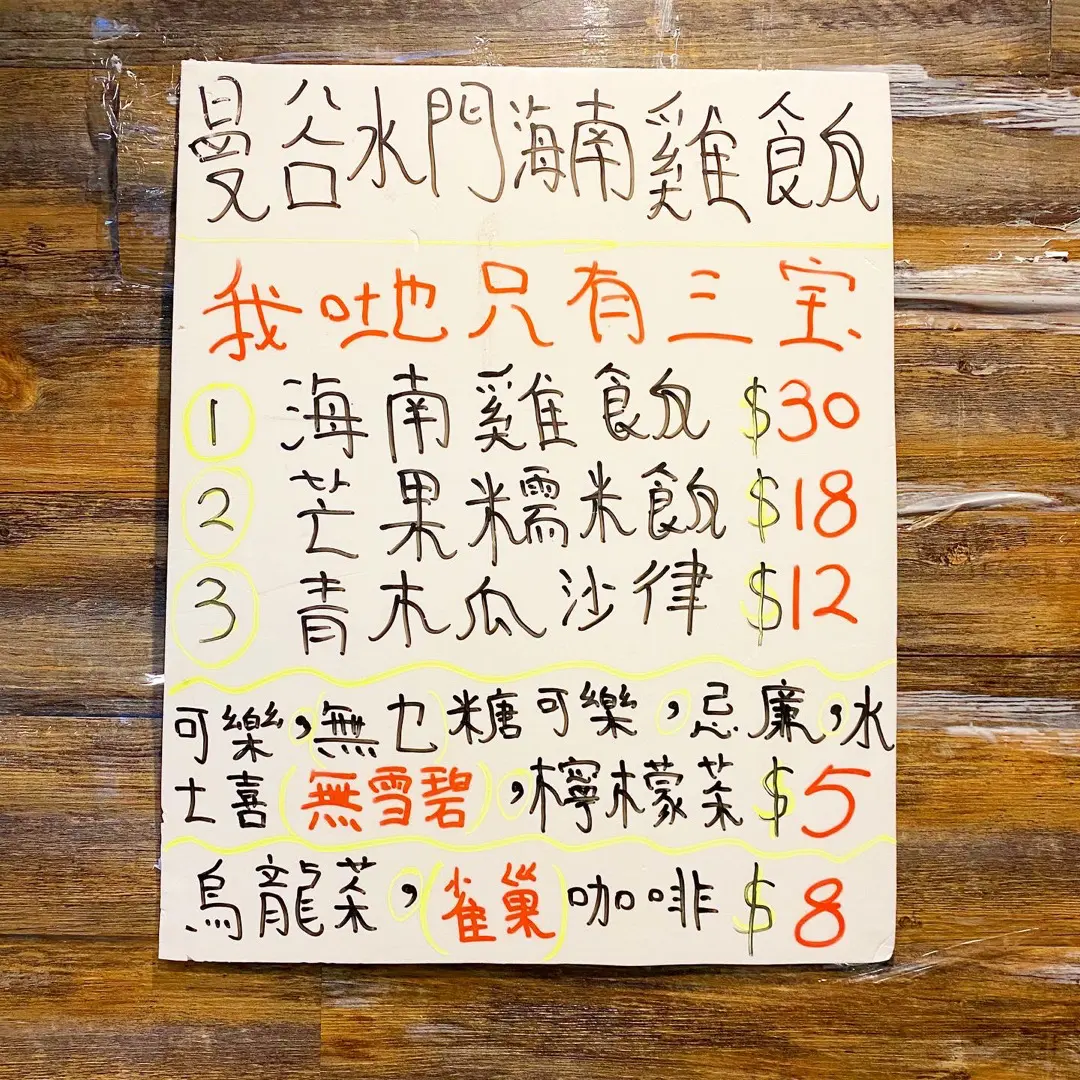 曼谷水門海南雞飯
我哋只有三宝
1 海南雞飯 $30
2 芒果糯米飯 $18
3 青木瓜沙律 $12
可樂,(無乜)糖可樂,忌廉,水
士喜(無雪碧),檸檬茶 $5
烏龍茶,(雀巢)咖啡 $8